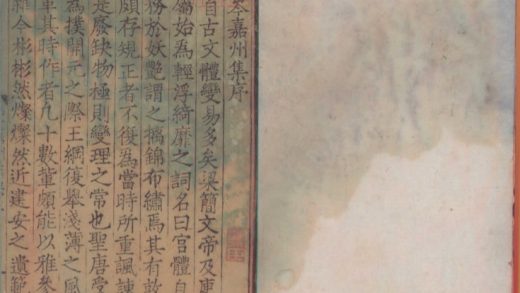 岑嘉州集序
自古文體變易多矣梁簡文帝及庾
屬始為輕浮綺靡之詞名曰宮體自
務於妖艷謂之摛錦布繡焉其有敦
頗存規正者不復為當時所重諷諫
是廢缺物極則變理之常也聖唐受
為樸開元之際王綱復舉淺薄之風
革其時作者凡十數輩頗能以雅參
雜今彬彬然燦燦然近建安之遺範